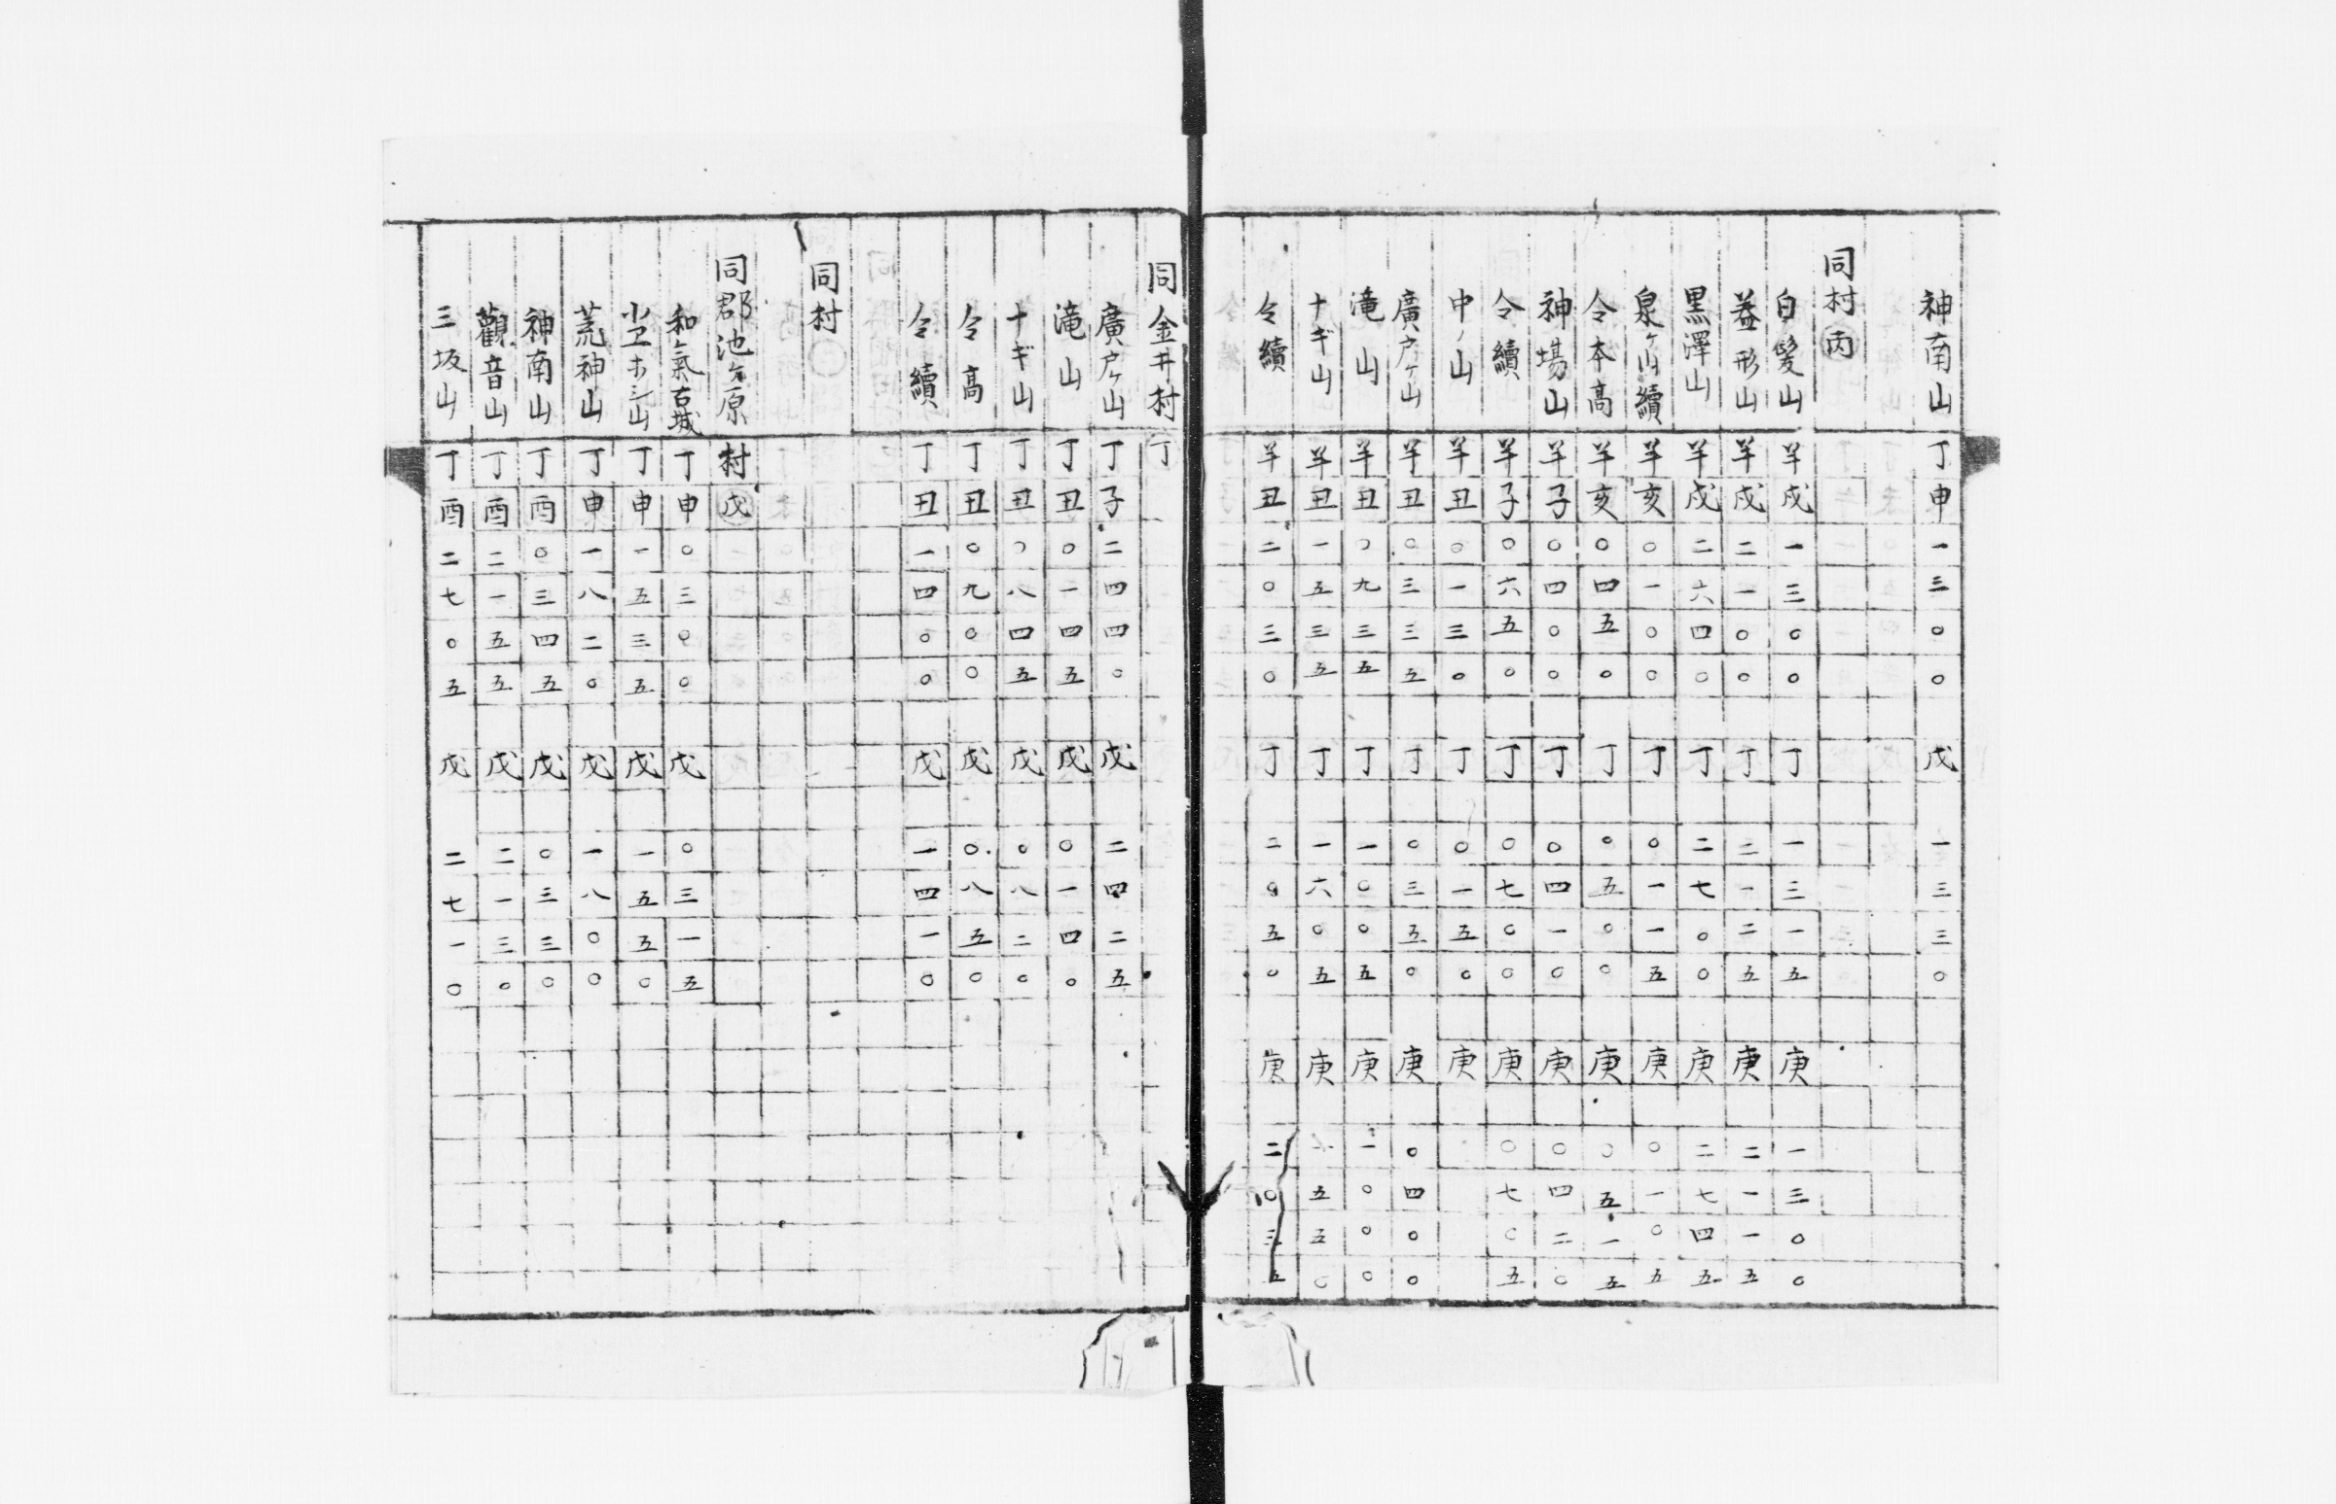 神南山 丁申 一三〇〇 戊 一三三〇
同村 丙
白髪山 羊戌 一三〇〇 丁 一三一五 庚 一三〇〇
益形山 羊戌 二一〇〇 丁 二一二五 庚 二一一五
黒澤山 羊戌 二六四〇 丁 二七〇〇 庚 二七四五
泉ヶ山續 羊亥 〇一〇〇 丁 〇一一五 庚 〇一〇五
令本高 羊亥 〇四五〇 丁 〇五〇〇 庚 〇五一五
神場山 羊子 〇四〇〇 丁 〇四一〇 庚 〇四二〇
令續 羊子 〇六五〇 丁 〇七〇〇 庚 〇七〇五
中ノ山 羊丑 〇一三〇 丁 〇一五〇 庚
廣戸ヶ山 羊丑 〇三三五 丁 〇三五〇 庚 〇四〇〇
滝山 羊丑 〇九三五 丁 一〇〇五 庚 一〇〇〇
十ギ山 羊丑 一五三五 丁 一六〇五 庚 一五五〇
令續 羊丑 二〇三〇 丁 二〇五〇 庚 二〇三五
同金井村 丁
廣戸ヶ山 丁子 二四四〇 戊 二四二五
滝山 丁丑 〇一四五 戊 〇一四〇
十ギ山 丁丑 〇八四五 戊 〇八二〇
令高 丁丑 〇九〇〇 戊 〇八五〇
令續 丁丑 一四〇〇 戊 一四一〇
同村
同郡池ヶ原村 戊
和氣古城 丁申 〇三〇〇 戊 〇三一五
丁申 一五三五 戊 一五五〇
荒神山 丁申 一八二〇 戊 一八〇〇
神南山 丁酉 〇三四五 戊 〇三三〇
觀音山 丁酉 二一五五 戊 二一三〇
三坂山 丁酉 二七〇五 戊 二七一〇